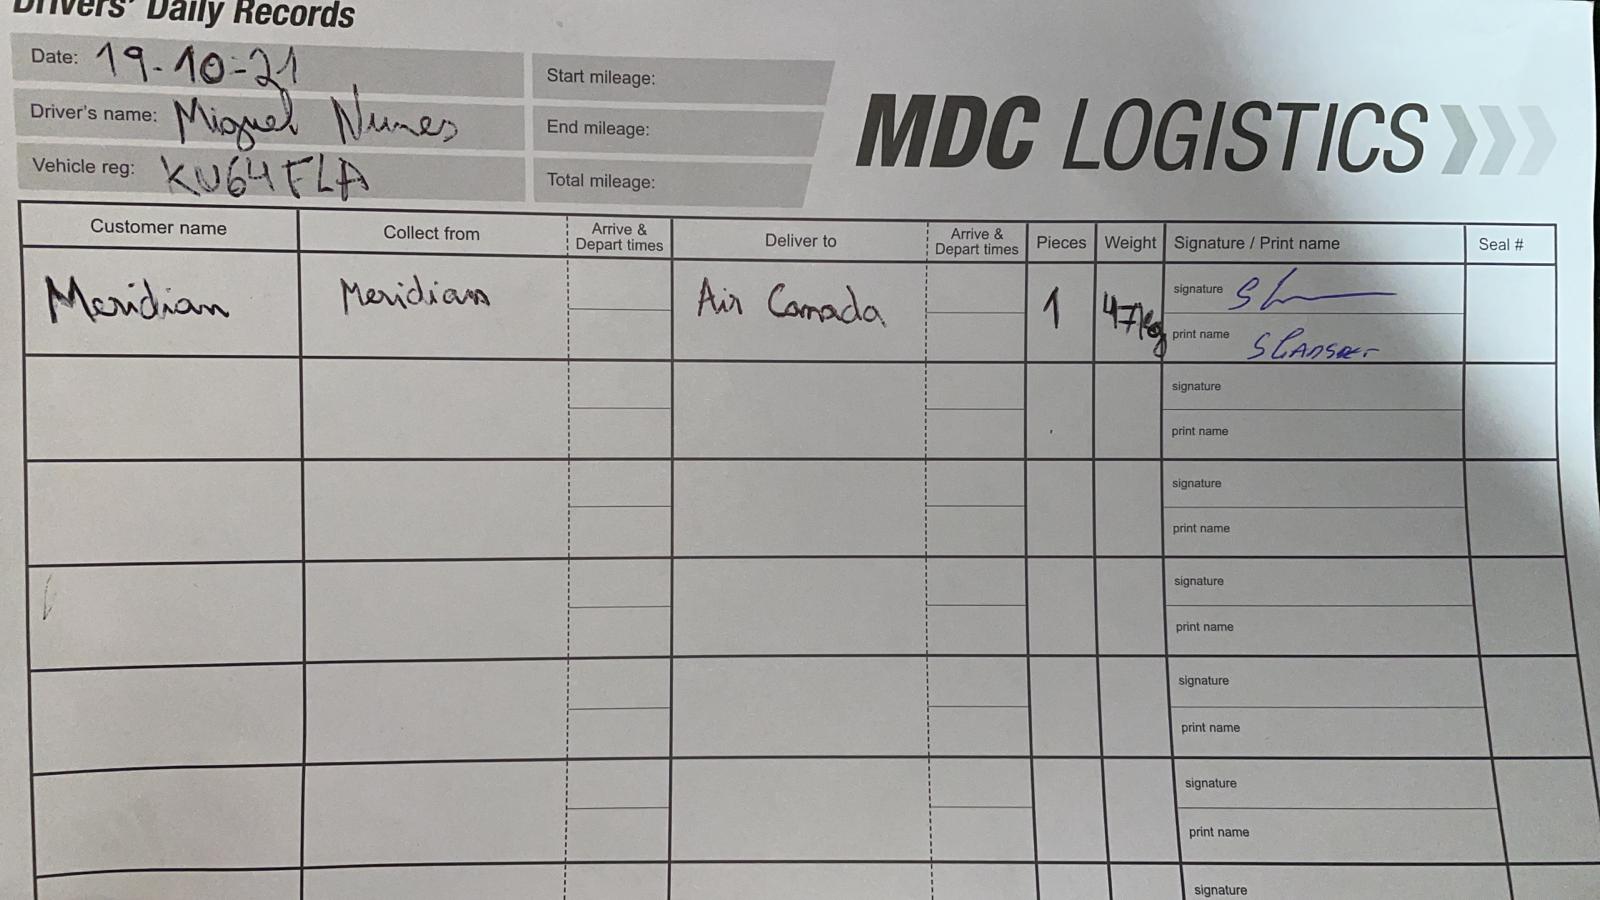 Drivers' Daily Records
Date: 19-10-21
Start mileage:
Driver's name: Miguel Nunes
End mileage:
Vehicle reg: KU64FLA
Total mileage:
MDC LOGISTICS
Customer name
Collect from
Arrive &
Depart times
Deliver to
Arrive &
Depart times
Pieces
Weight
Signature / Print name
Seal #
Meridian
Meridian
Air Canada
1
47kg
signature
print name
signature
print name
signature
print name
signature
print name
signature
print name
signature
print name
signature